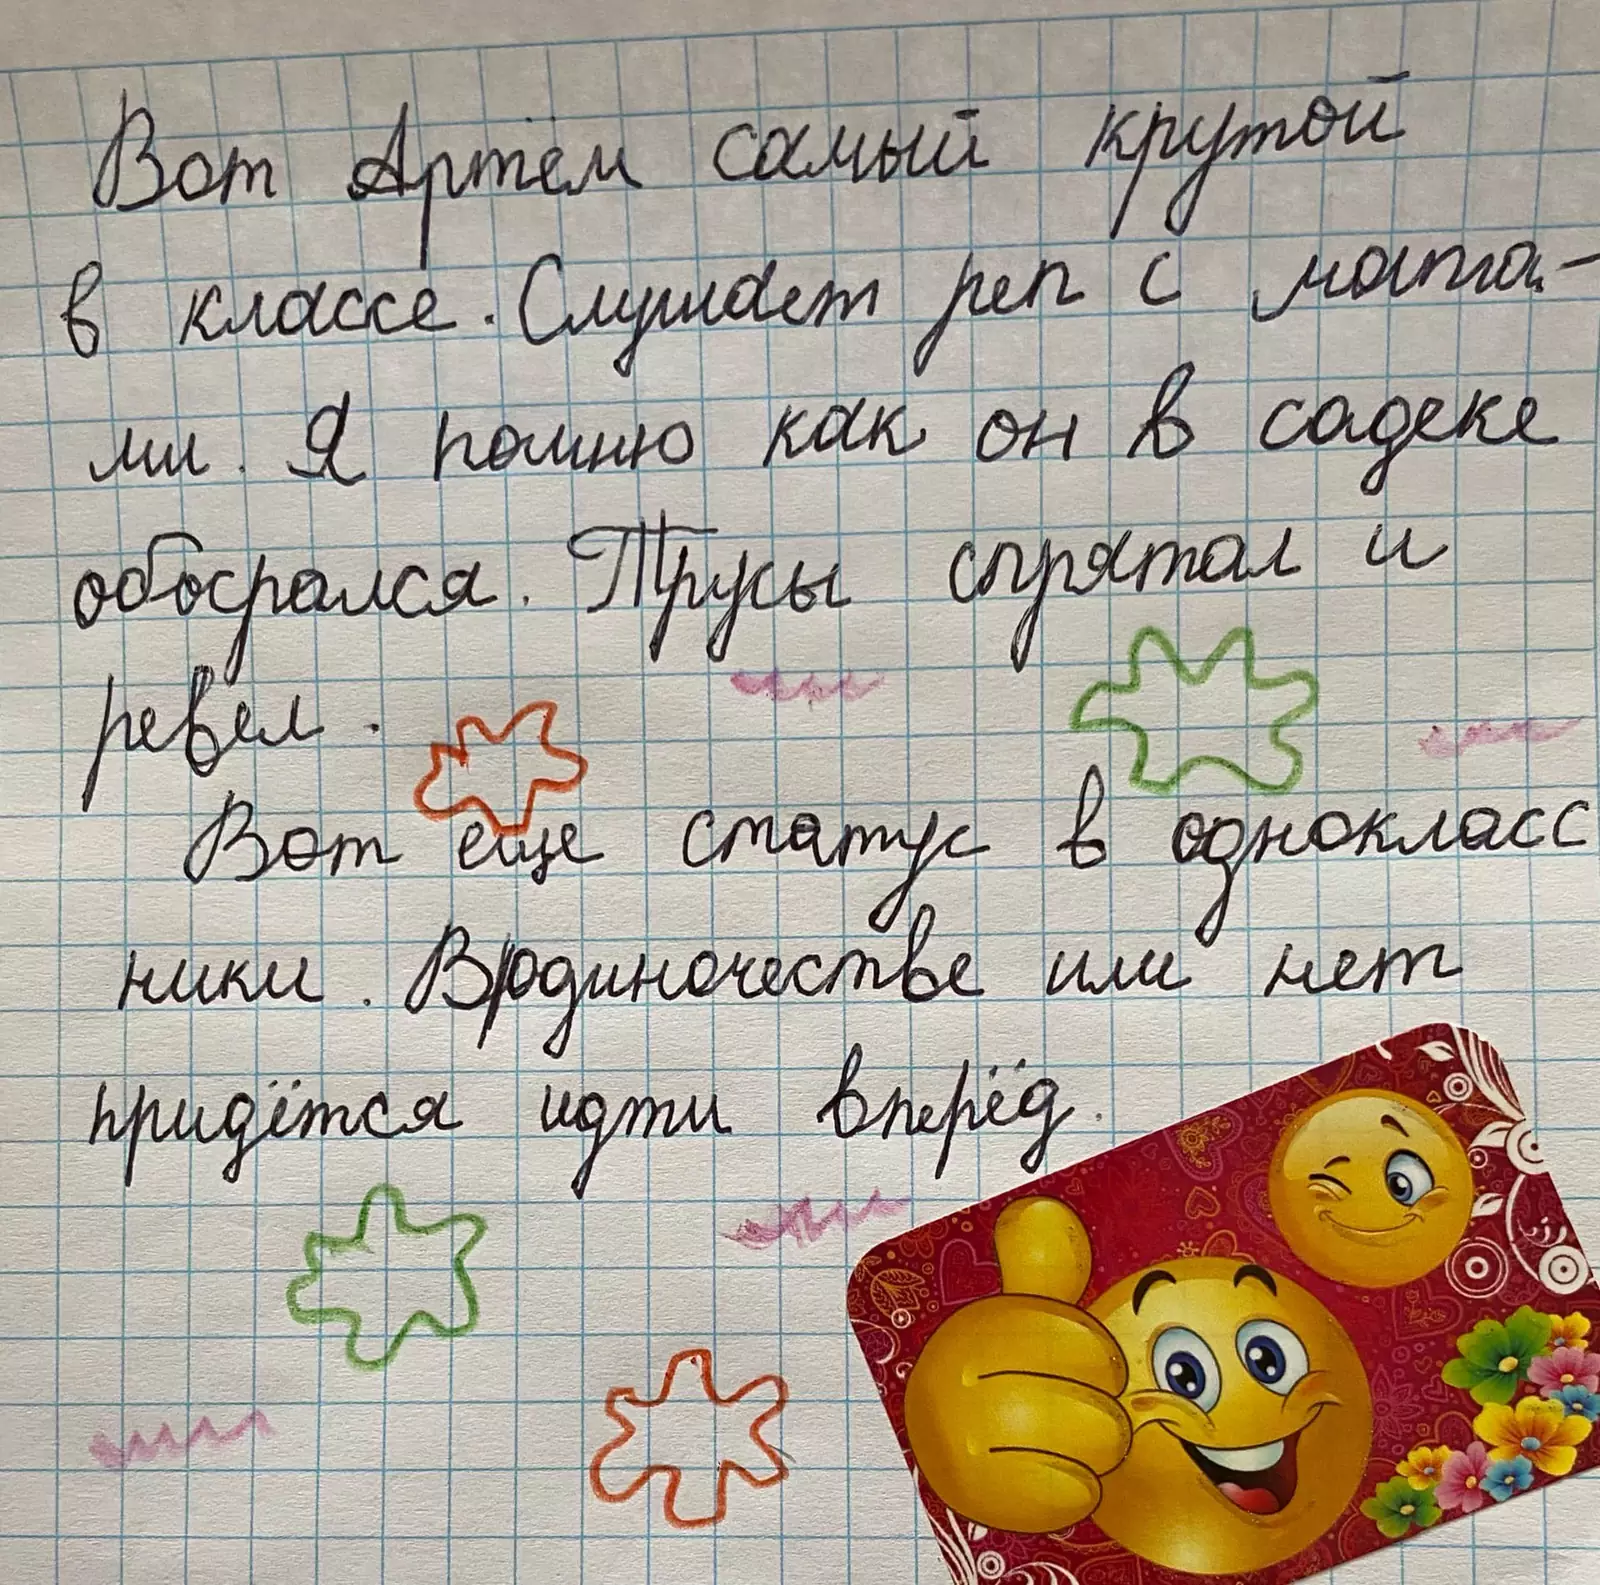 Вот Артём самый крутой
в классе. Слушает реп с мата-
ми. Я помню как он в садеке
обосрался. Трусы спрятал и
ревел.
Вот еще статус в однокласс
ники. В одиночестве или нет
придётся идти вперёд.